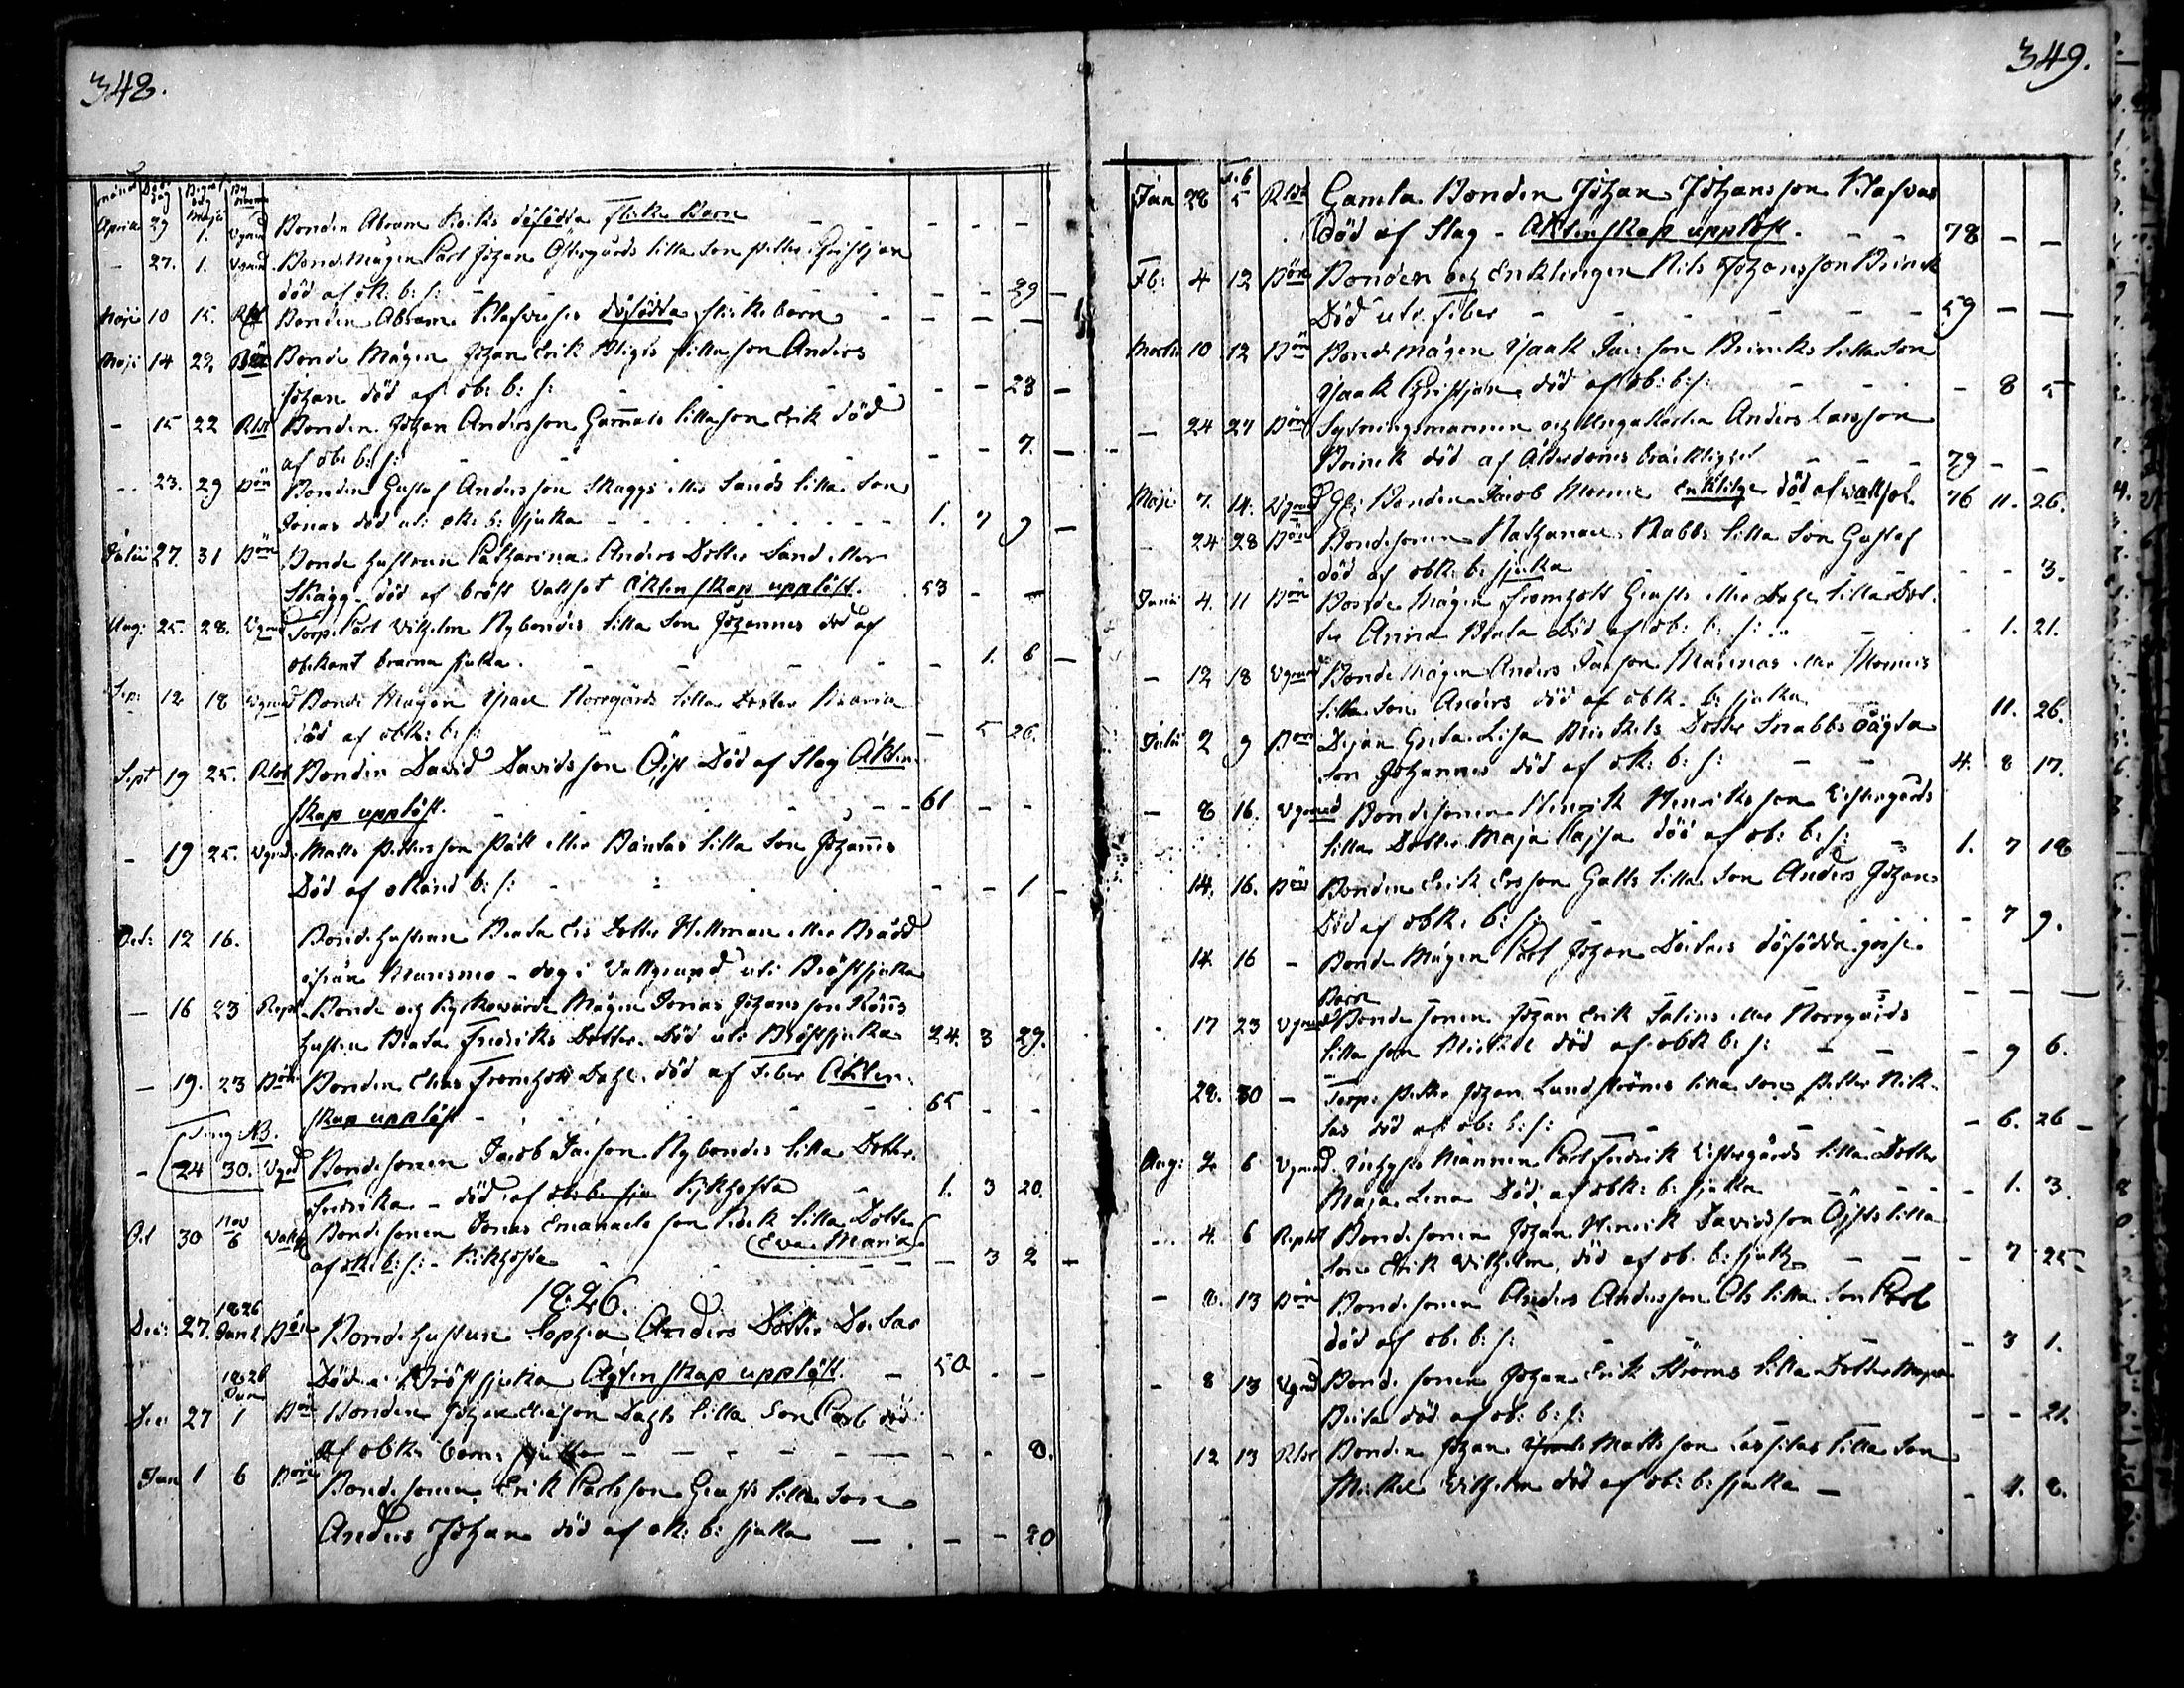 348.
månad Död dag Begraf dag By namn
Aprill 29 Maji 1. Vgrund Bonden Abram Knifs dösfödda flicke Barn
- 27. 1. Vgrund Bondemågen Carl Johan Östergårds lilla Son Petter Christjan
död af ok: b: s: - - - 29 -
Maji 10 15. Rlot Bonden Abram Klasvases dösfödda flicke barn - - -
Maji 14 22 Bön Bonde Mågen Johan Erik Bligs lilla son Anders
Johan död af ob: b: s: - - 23 -
- 15 22 Rlot Bonden Johan Andersson Gammals lilla son Erik död
af ob: b: s: - - 7. -
- 23. 29 Bön Bonden Gustaf Andersson Skaggs eller Sands lilla Son
Jonas död uti ok: b: sjuka - - 1. 7 9 -
Julii 27. 31 Bön Bonde hustrun Catharina Anders Dotter Sand eller
Skagg död af bröst Vattsot Äktenskap upplöst. 53 - -
Aug: 25. 28. Vgrund Torp: Carl Wilhelm Nybondes lilla Son Johannes död af
obekant barna sjuka. - - 1. 6 -
Sep: 12 18 Vgrund Bonde Mågen Isac Norrgårds lilla Dotter Maria
död af obk: b: s: - 5 26.
Sept 19 25. Rlot Bonden David Davidsson Öist Död af Slag Äkten-
skap upplöst. - - 61 - -
- 19 25. Vgrd Matts Pettersson Pått eller Bäntas lilla Son Johannes
Död af okänd b: s: - - - 1 -
Oct: 12 16. Bonde hustrun Beata Eis Dotter Hellman eller Brådd
ifrån Maxsmo - dog i Vallgrund uti Bröstsjuka
- 16 23 Repl. Bonde och Kyrkowärde Mågen Jonas Johansson Rönns
hustru Beata Fredriks Dotter Död uti Bröstsjuka 24. 3 29.
- 19. 23 Bön Bonden Elias Fromholds Dahl. död af Feber Äkten-
skap upplöst - - 65 - -
NB.
- 24 30. Vgrd Bondesonen Jacob Jacsson Nybondes lilla Dotter
Fredrika - död af ob: b: sju Kikhosta - 1. 3 20.
Oct 30 Nov 6 Vallgr Bondesonen Jonas Emanuelsson Knifs lilla Dotter
Eva Maria
af ok: b: s: - Kikhosta - - 3 2 -
1826.
Dec: 27. 1826 Jan 1 Bön Bondehustrun Sophia Anders Dotter Dei Las
Död i Bröstsjuka Ägtenskap upplöst. - 50 - -
Dec 27 1826 Jan 1 Bön Bonden Johan Eliasson Dahls lilla Son Carl död
af obk: barn sjuka - - - 8.
Jan 1 6 Bön Bondesonen Erik Carlsson Grafs lilla Son
Anders Johan död af ok: b: sjuka - - - 20
349.
Jan 28 Feb 5 Rlot Gamla Bonden Johan Johansson Klasvas
Död af Slag - Äktenskap upplöst. - - 78 - -
Fb: 4 12 Bön Bonden och Enklingen Nils Johansson Brinck
Död uti feber - - - 59 - -
Martii 10 12 Bön Bondemågen Isaak Jacsson Brincks lilla Son
Isaak Christjan död af ob: b: s: - - 8 5
- 24 27 Bön Sytningsmannen och Ungakarln Anders Larsson
Brinck död af Ålderdoms bräcklighet - - 79 - -
Maji 7. 14. Vgrund Gl: Bonden Jacob Monne Enkling död af wattsot. 76 11. 26.
- 24 28 Bön Bondesonen Nathanael Nabbs lilla Son Gustaf
död af obk: b: sjuka - - 3.
Junii 4. 11 Bön Bonde Mågen Fromholt Grafs eller Dahl lilla Dot-
ter Anna Beata död af ob: b: s: - - 1. 21.
- 12 18 Vgrund Bonde Mågen Anders Jacsson Marinas eller Monnes
lilla Son Anders död af obk. b: sjuka - 11. 26.
Julii 2 9 Bön Pigan Greta Lisa Mickels Dotter Snabbs oägta
Son Johannes död af ok: b: s: - - 4. 8 17.
- 8 16. Vgrund Bondesonen Henrik Henriksson Westergårds
lilla Dotter Maja Cajsa död af ob: b: s: - 1. 7 18
14. 16. Bön Bonden Erik Ersson Galts lilla Son Anders Johan
Död af obk: b: s: - - 7 9.
14. 16 - Bonde Mågen Carl Johan Dei Lars dösfödda gosse
Barn - - -
- 17 23 Vgrund Bonde sonen Johan Erik Salins eller Norrgårds
lilla son Mickel död af obk b: s: - - - 9 6.
28. 30 - Torp: Petter Johan Lundströms lilla Son Petter Nik-
las död af ob: b: s: - - 6. 26 -
Aug: 2 6 Vgrund. Inhyses Mannen Carl Fredrik Westergårds lilla Dotter
Maja Lena Död af obk: b: sjuka - - 1. 3.
- 4. 6 Replot Bondesonen Johan Henrik Davidsson Öists lilla
Son Erik Wilhelm död af ob: b: sjuk - - 7 25
- 8. 13 Bön Bondesonen Anders Andersson Ols lilla Son Carl
död af ob: b: s: - - 3 1.
- 8 13 Vgrd Bonde sonen Johan Erik Ströms lilla Dotter Maja
Greta död af ob: b: s: - - 21.
12 13 Rlot Bonden Johan Mattsson Lassilas lilla Son
Mickel Wilhelm död af ob: b: sjuka - - 4. 8.